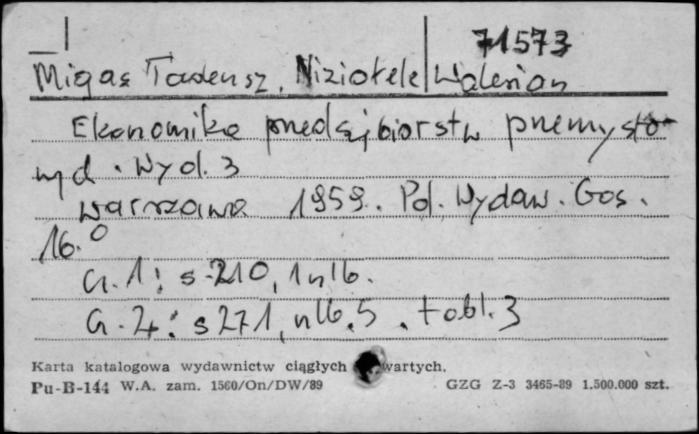 71573
Migas Tadeusz, Niziołek Walerian
Ekonomika przedsiębiorstw przemysło-
wych. Wyd. 3
Warszawa 1959. Pol. Wydaw. Gos.
16.0
Cz. 1: s 210, 1 nlb.
Cz. 2: s 271, nlb. 5. tabl. 3
Karta katalogowa wydawnictw ciągłych wartych.
Pu-B-144 W.A. zam. 1560/On/DW/89 GZG Z-3 3465-89 1.500.000 szt.